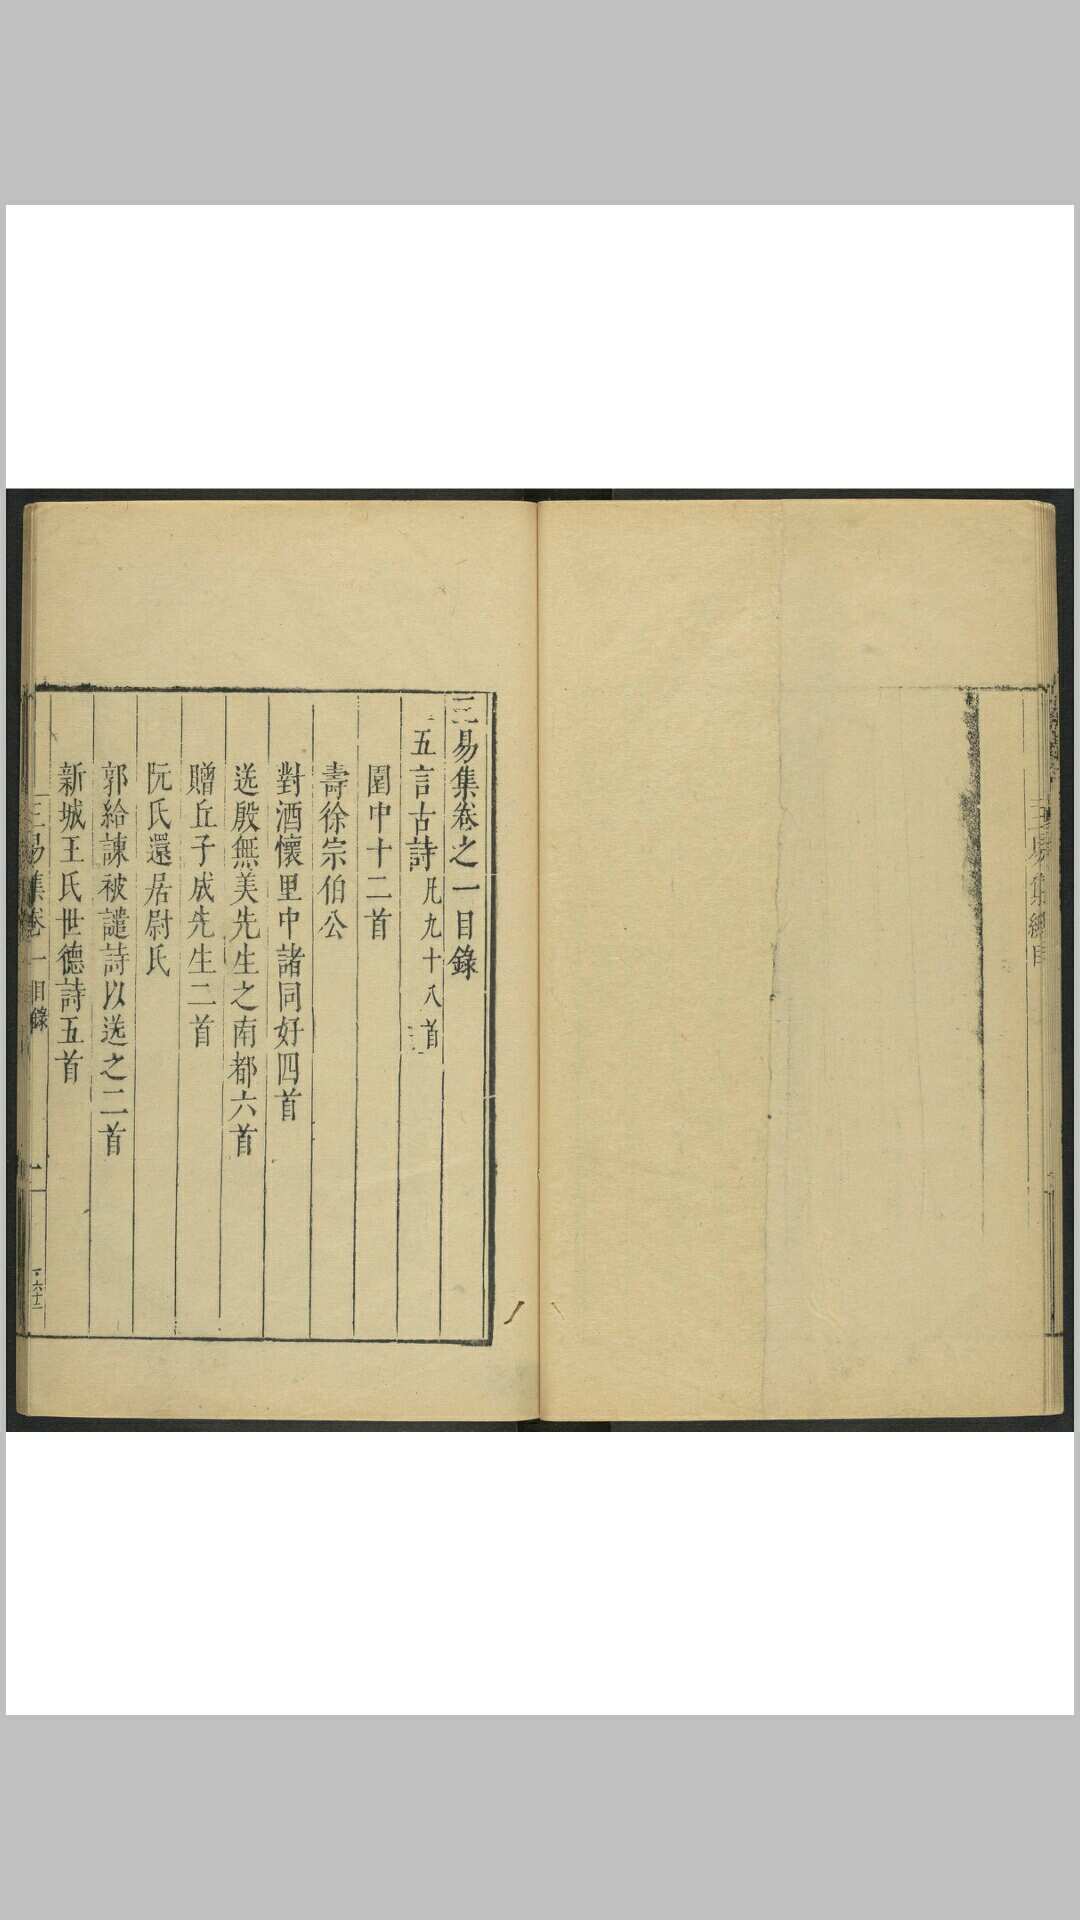 三易集總目
三易集卷之一目錄
五言古詩凡九十八首
園中十二首
壽徐宗伯公
對酒懷里中諸同好四首
送殷無美先生之南都六首
贈丘子成先生二首
阮氏還居尉氏
郭給諫被譴詩以送之二首
新城王氏世德詩五首
三易集卷一目錄
一